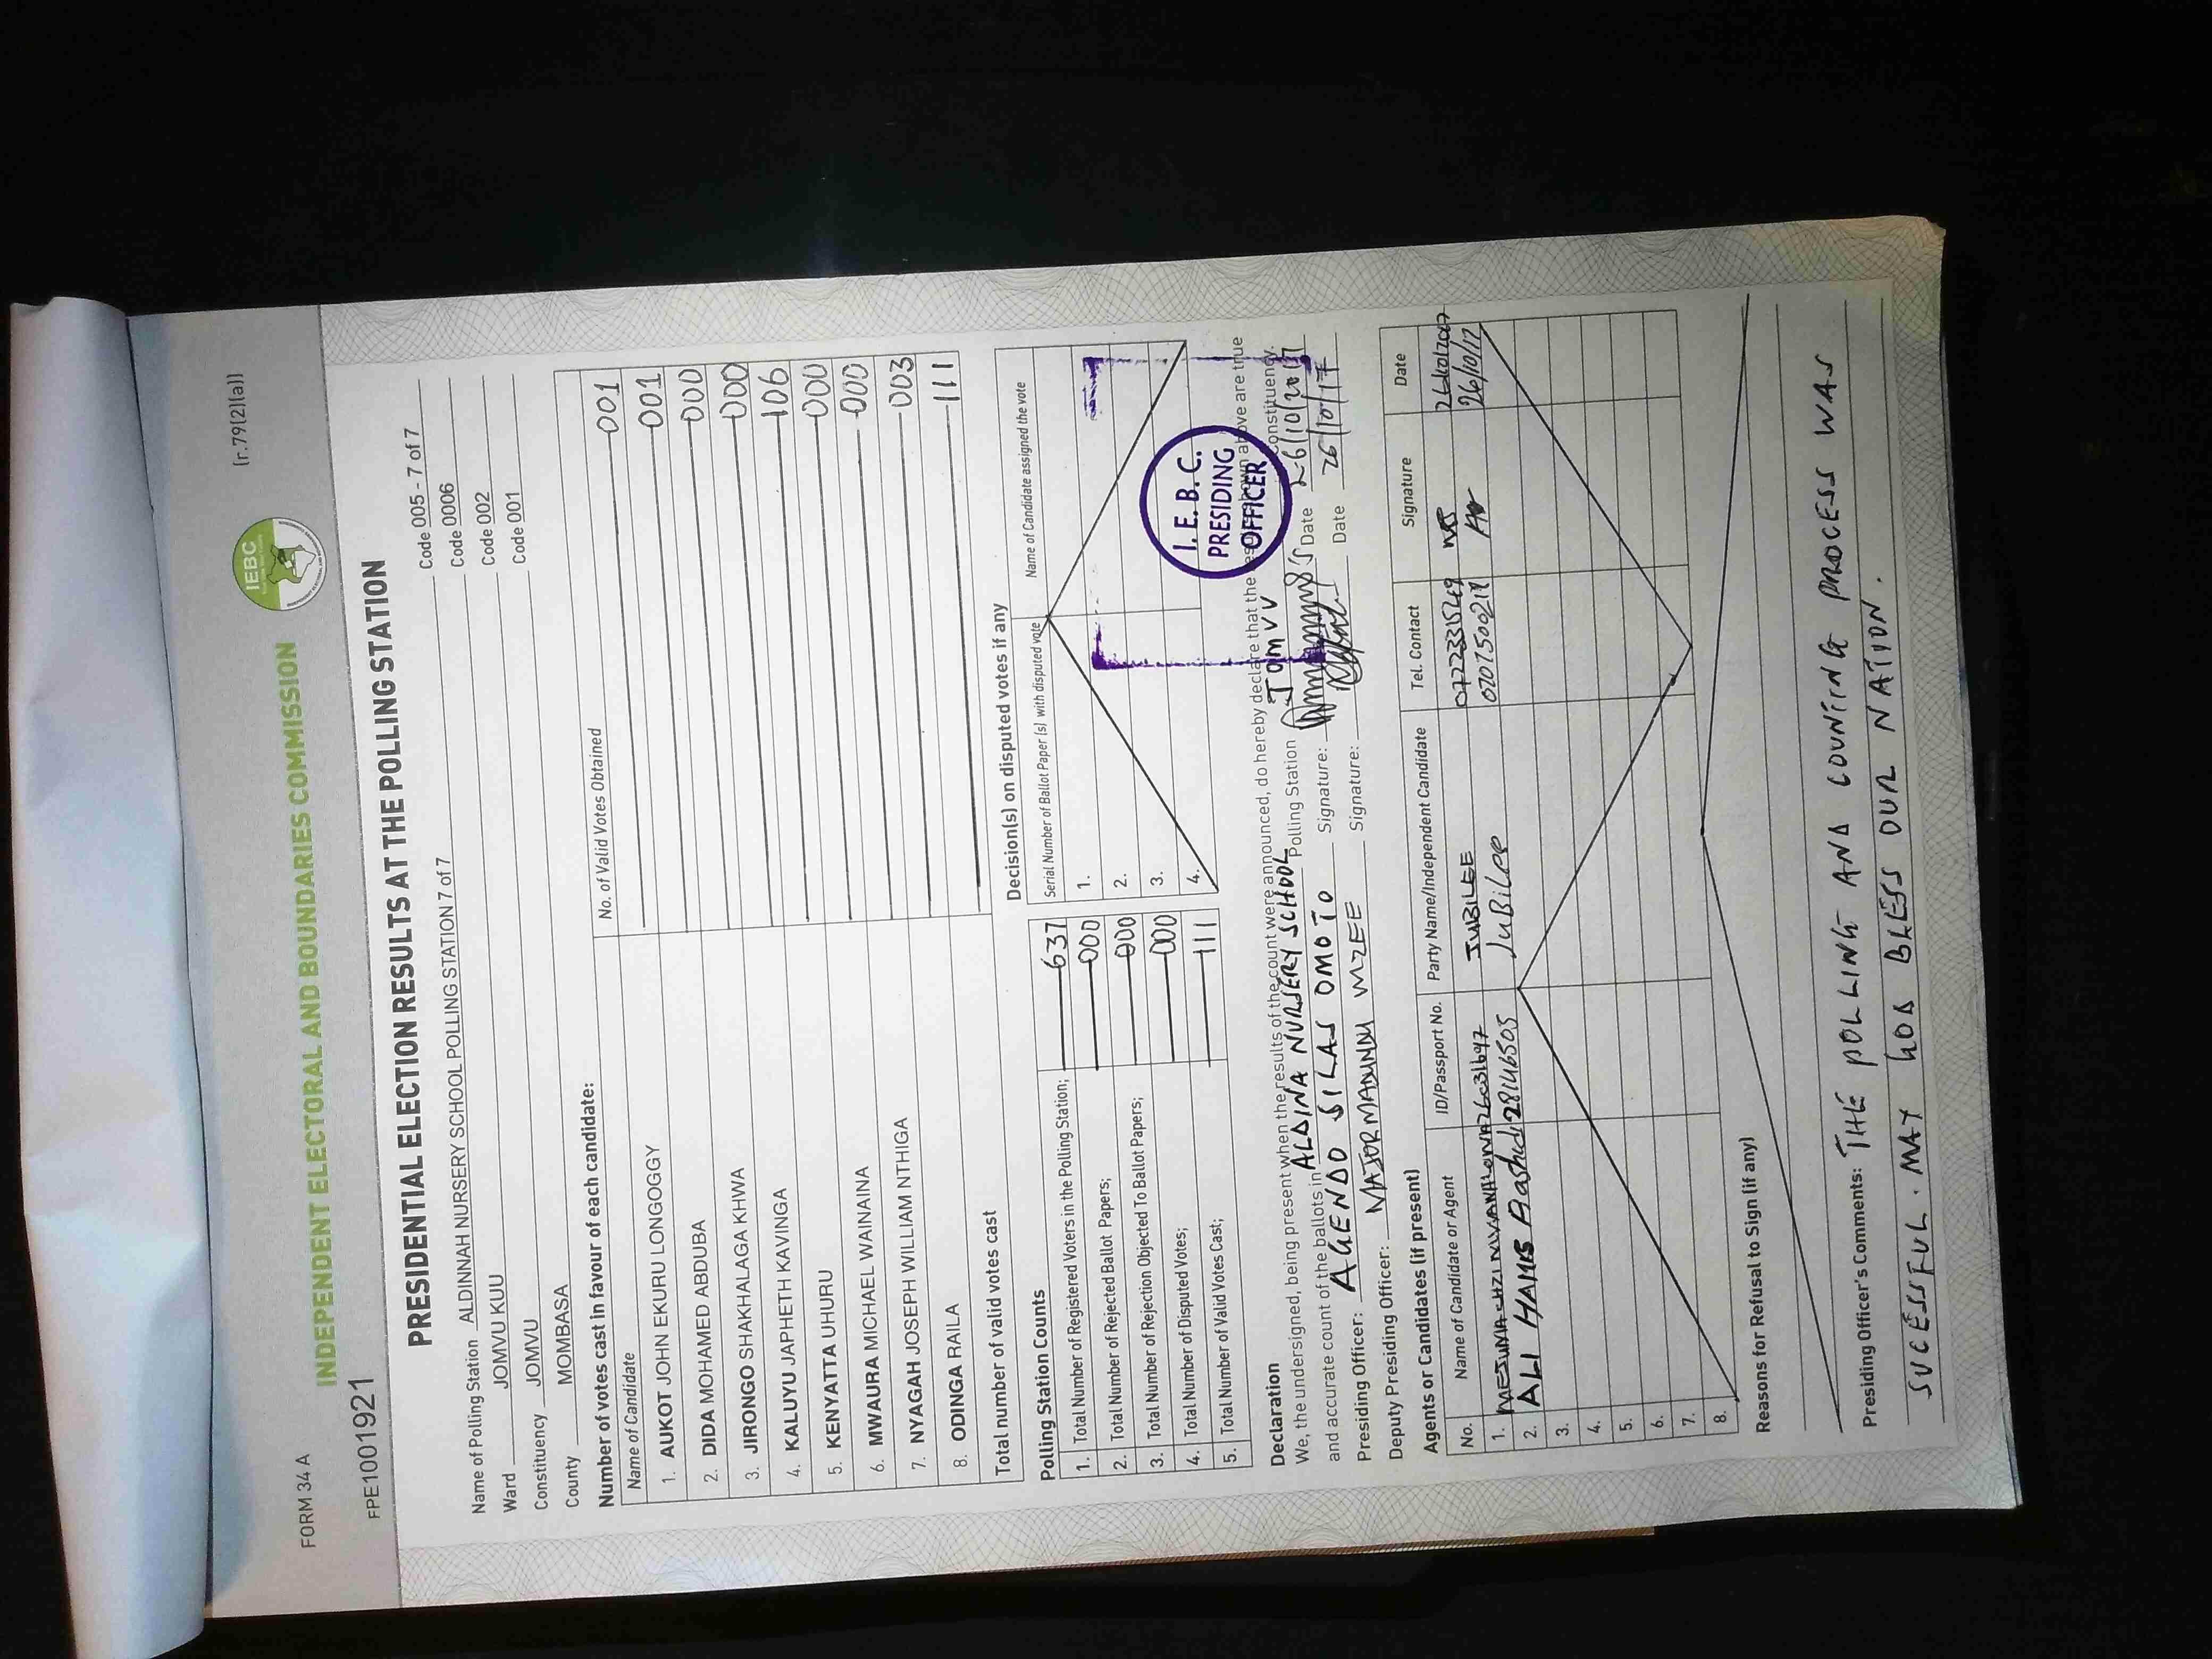 FORM 34 A
(r.79(2)(a))
IEBC
INDEPENDENT ELECTORAL AND BOUNDARIES COMMISSION
FPE1001921
PRESIDENTIAL ELECTION RESULTS AT THE POLLING STATION
Name of Polling Station ALDINNAH NURSERY SCHOOL POLLING STATION 7 of 7 Code 005 - 7 of 7
Ward JOMVU KUU Code 0006
Constituency JOMVU Code 002
County MOMBASA Code 001
Number of votes cast in favour of each candidate:
Name of Candidate No. of Valid Votes Obtained
1. AUKOT JOHN EKURU LONGOGGY 001
2. DIDA MOHAMED ABDUBA 001
3. JIRONGO SHAKHALAGA KHWA 000
4. KALUYU JAPHETH KAVINGA 000
5. KENYATTA UHURU 106
6. MWAURA MICHAEL WAINAINA 000
7. NYAGAH JOSEPH WILLIAM NTHIGA 000
8. ODINGA RAILA 003
Total number of valid votes cast 111
Polling Station Counts
1. Total Number of Registered Voters in the Polling Station; 637
2. Total Number of Rejected Ballot Papers; 000
3. Total Number of Rejection Objected To Ballot Papers; 000
4. Total Number of Disputed Votes; 000
5. Total Number of Valid Votes Cast; 111
Decision(s) on disputed votes if any
Serial Number of Ballot Paper (s) with disputed vote Name of Candidate assigned the vote
1.
2.
3.
4.
I.E.B.C.
PRESIDING
OFFICER
Declaration
We, the undersigned, being present when the results of the count were announced, do hereby declare that the results shown above are true
and accurate count of the ballots in ALDINA NURSERY SCHOOL Polling Station JOMVU Constituency.
Presiding Officer: AGENDO SILAS OMOTO Signature: Date 26/10/2017
Deputy Presiding Officer: MZEE Signature: Date 26/10/17
Agents or Candidates (if present)
No. Name of Candidate or Agent ID/Passport No. Party Name/Independent Candidate Tel. Contact Signature Date
1. JUBILEE
2. ALI HAMIS Rashidi 28146505 JuBilee 0707500211 26/10/17
3.
4.
5.
6.
7.
8.
Reasons for Refusal to Sign (if any)
Presiding Officer's Comments: THE POLLING AND COUNTING PROCESS WAS
SUCESSFUL. MAY GOD BLESS OUR NATION.